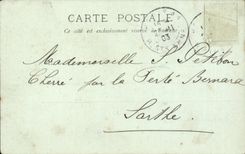 CARTE POSTALE
Ce côté est exclusivement réservé à l'adresse
Mademoiselle S. Petibon
Cherré par la Ferté Bernard
Sarthe